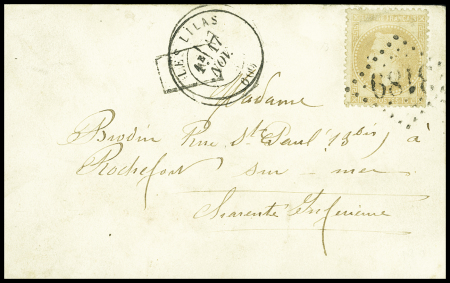 LES LILAS
17
NOV.
(60)
6818
Madame
Brodin Rue St Paul 13 bis, à
Rochefort sur - mer
Charente Inférieure